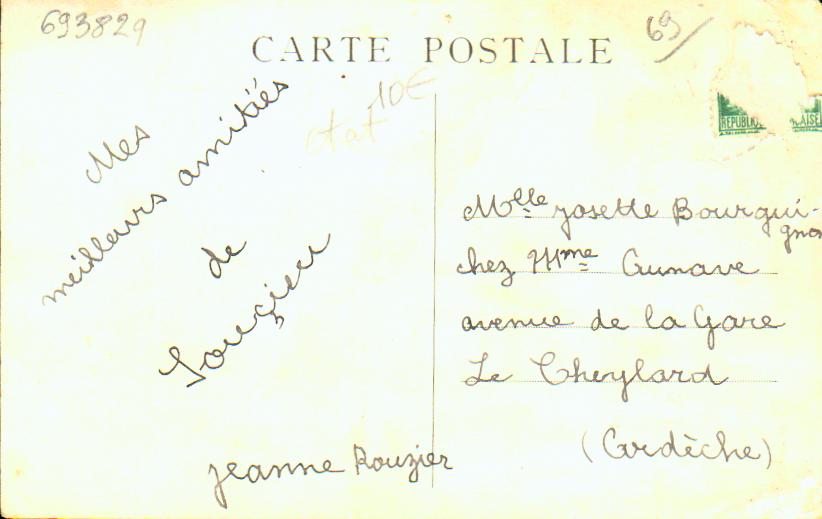 693829
69/
CARTE POSTALE
10€
état
RÉPUBLIQ
AISE
Mes
meilleurs amitiés
de
Souçieu
Jeanne Rouzier
Mlle Josette Bourgui-
gnon
chez Mme Cunave
avenue de la Gare
Le Cheylard
(Ardèche)